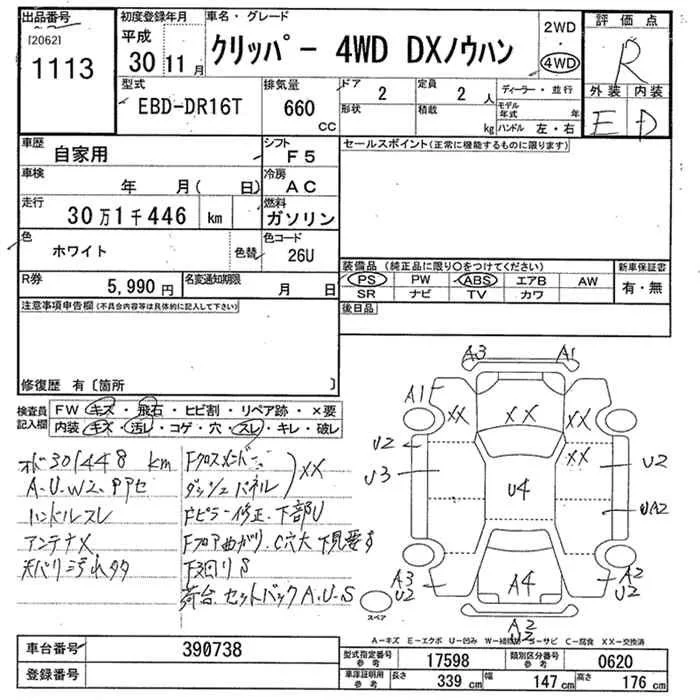 出品番号
[2062]
1113
初度登録年月
平成
30 11月
車名・グレード
クリッパー 4WD DXノウハン
2WD
・
4WD
評価点
R
外装 内装
E D
型式
EBD-DR16T
排気量
660
CC
ドア
2
形状
定員
2 人
積載
kg
ディーラー・並行
モデル年式 年
ハンドル 左・右
車歴
自家用
シフト
F5
車検
年 月( 日)
冷房
AC
走行
30万1千446 km
燃料
ガソリン
色
ホワイト
色替
色コード
26U
R券
5,990円
名変通知期限
月 日
セールスポイント(正常に機能するものに限ります)
装備品(純正品に限り○をつけてください)
PS PW ABS エアB AW
SR ナビ TV カワ
新車保証書
有・無
後日品
注意事項申告欄(不具合内容等は具体的に記入して下さい)
修復歴 有〔箇所 〕
検査員
記入欄
FW キズ・飛石・ヒビ割・リペア跡・×要
内装 キズ・汚レ・コゲ・穴・スレ・キレ・破レ
301448 km
A.U.W2.
ハンドルスレ
アンテナX
Fクロスメンバー
ダッシュパネル
XX
Fピラー修正.下部U
Fフロア曲がり.C穴大 下見要す
下回りS
荷台.セットバックA.U.S
A3 A1
A1
XX XX XX
XX
U2
U3
U4
U2
UA2
A3
U2
A4
A2
U2
A2
U2
スペア
A−キズ E−エクボ U−凹み W−補修跡 S−サビ C−腐食 XX−交換済
車台番号
390738
登録番号
型式指定番号
参考
17598
類別区分番号
参考
0620
車庫証明用
参考
長さ 339 cm 幅 147 cm 高さ 176 cm